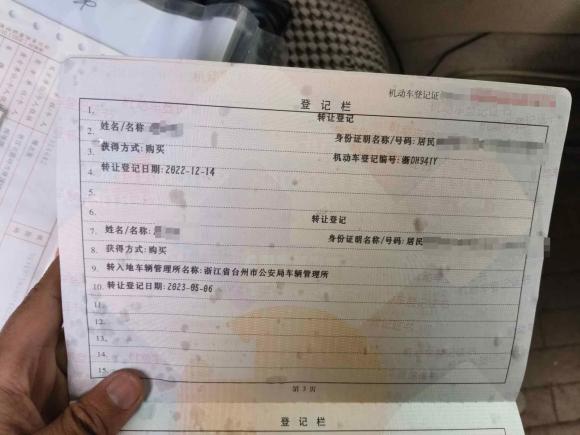 机动车登记证
登记栏
1. 转让登记
2. 姓名/名称: 身份证明名称/号码:居民
3. 获得方式:购买 机动车登记编号:浙DH941Y
4. 转让登记日期:2022-12-14
5.
6. 转让登记
7. 姓名/名称: 身份证明名称/号码:居民
8. 获得方式:购买
9. 转入地车辆管理所名称:浙江省台州市公安局车辆管理所
10. 转让登记日期:2023-05-06
11.
12.
13.
14.
15.
第 3 页
登记栏